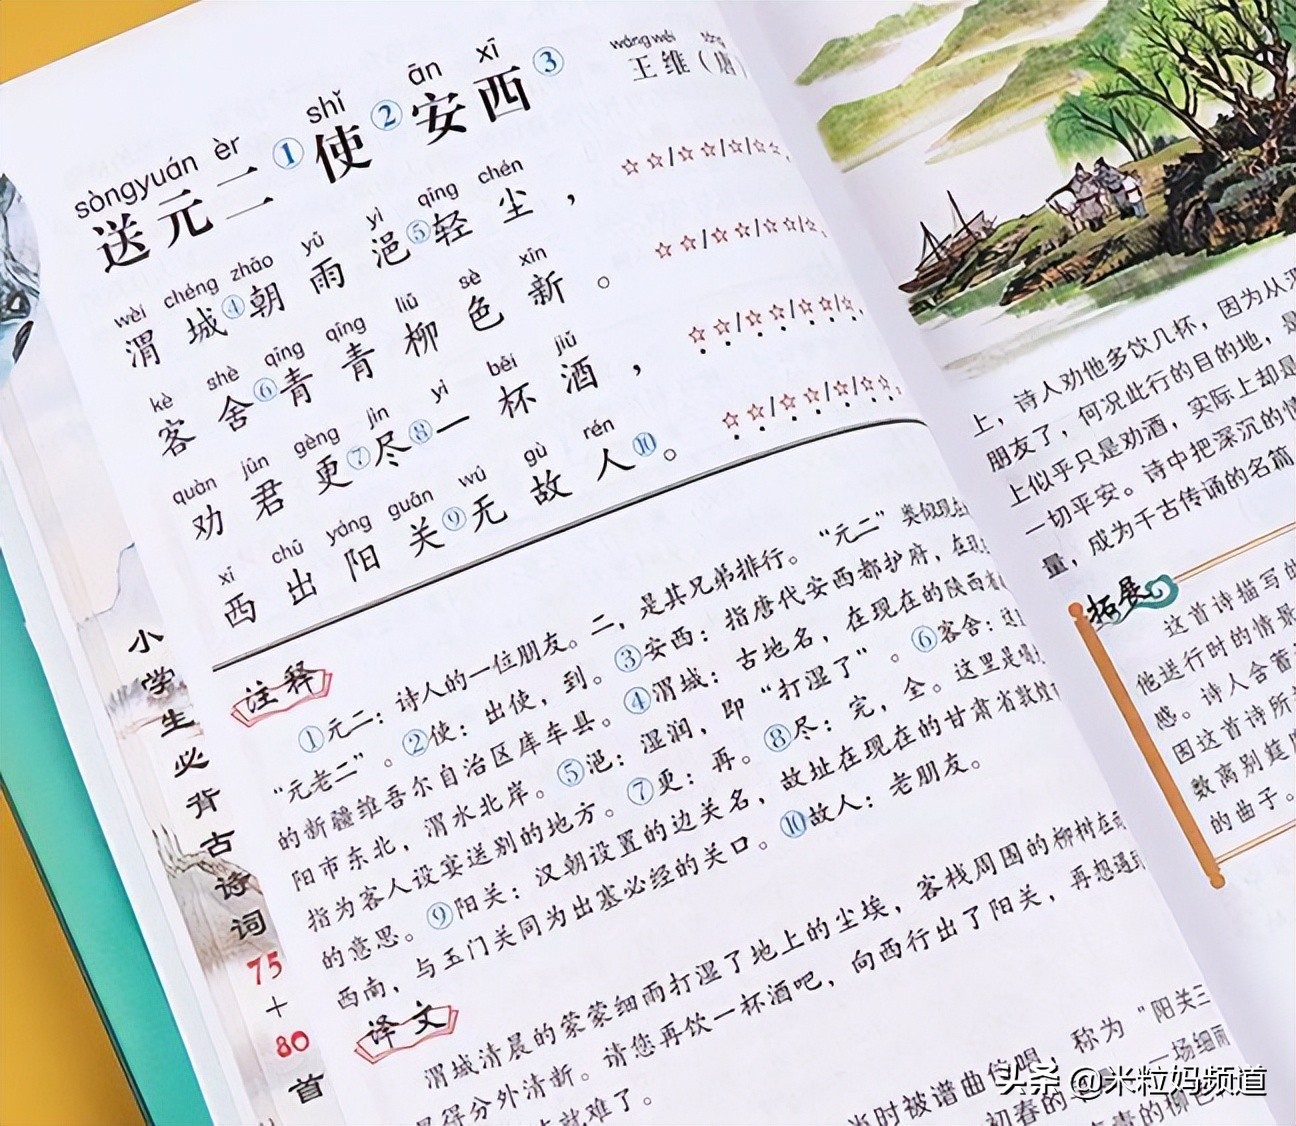 sòngyuán èr shǐ ān xī
送元二①使②安西③
wángwéi
王维（唐）
wèi chéng zhāo yǔ yì qīng chén
渭城④朝雨浥⑤轻尘，
kè shè qīng qīng liǔ sè xīn
客舍⑥青青柳色新。
quàn jūn gèng jìn yì bēi jiǔ
劝君更⑦尽⑧一杯酒，
xī chū yáng guān wú gù rén
西出阳关⑨无故人⑩。
注释
①元二：诗人的一位朋友。二，是其兄弟排行。“元二”类似现在
“元老二”。②使：出使，到。③安西：指唐代安西都护府，在现
的新疆维吾尔自治区库车县。④渭城：古地名，在现在的陕西省
阳市东北，渭水北岸。⑤浥：湿润，即“打湿了”。⑥客舍：这
指为客人设宴送别的地方。⑦更：再。⑧尽：完，全。这里是
的意思。⑨阳关：汉朝设置的边关名，故址在现在的甘肃省敦煌
西南，与玉门关同为出塞必经的关口。⑩故人：老朋友。
译文
渭城清晨的蒙蒙细雨打湿了地上的尘埃，客栈周围的柳树在雨
显得分外清新。请您再饮一杯酒吧，向西行出了阳关，再想遇
就难了。
当时被谱曲传唱，称为“阳关三
初春的 一场细雨
青的柳色
小学生必背古诗词75+80首
上，诗人劝他多饮几杯，因为从
朋友了，何况此行的目的地，是
上似乎只是劝酒，实际上却是
一切平安。诗中把深沉的情
量，成为千古传诵的名篇
拓展
这首诗描写的
他送行时的情景
感。诗人含蓄
因这首诗所
数离别筵
的曲子。
头条 @米粒妈频道